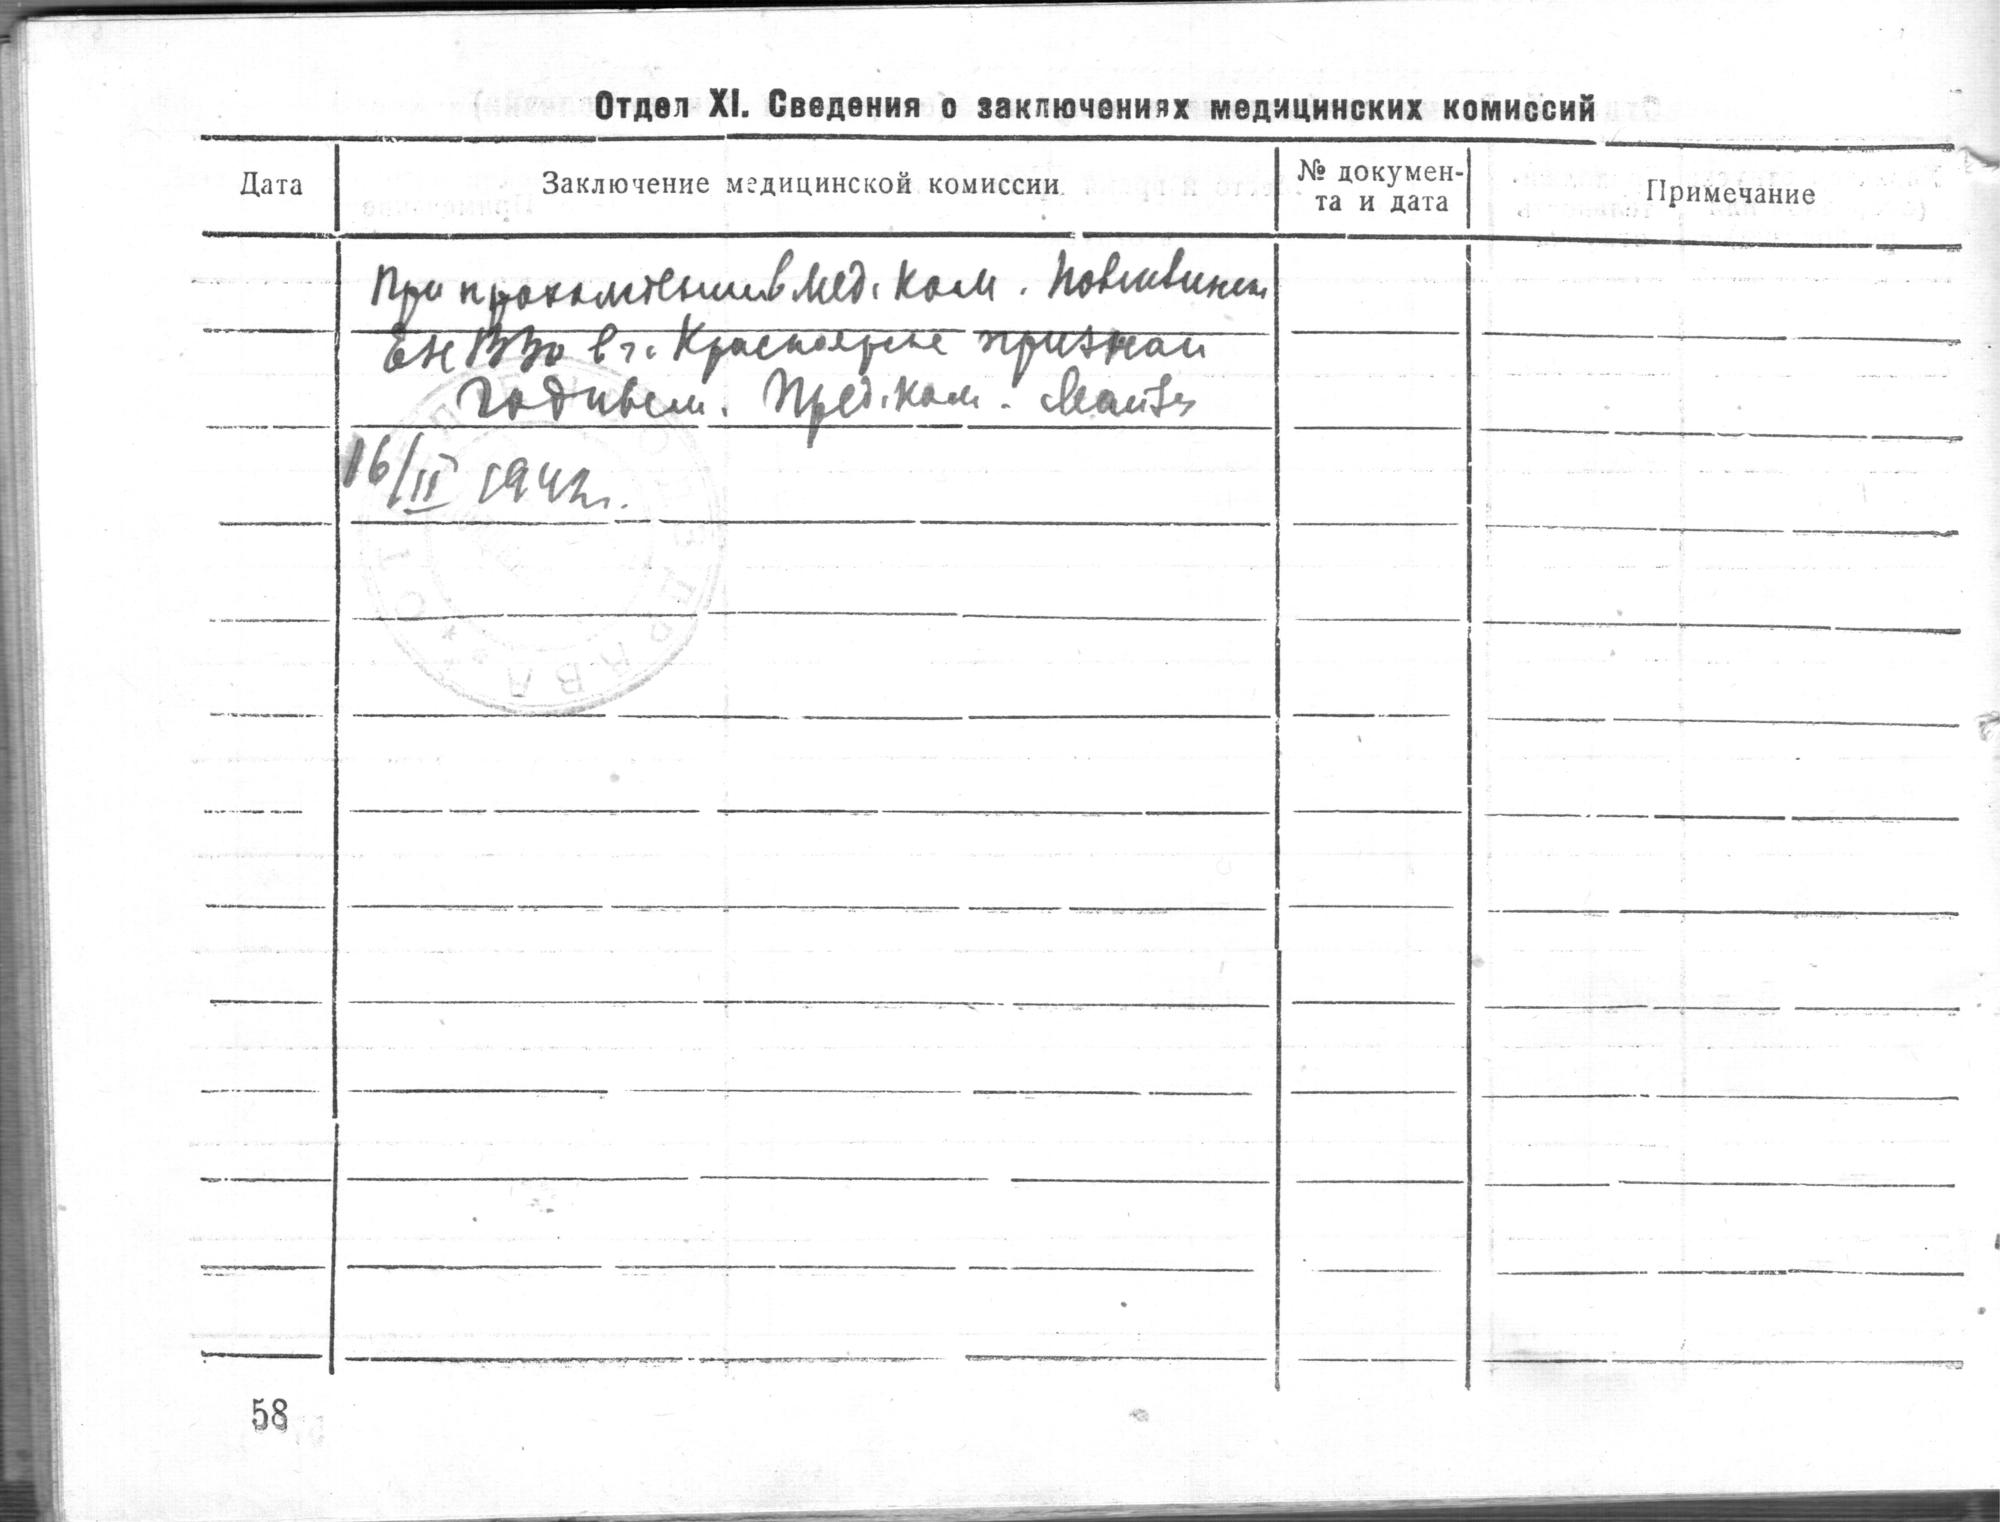 Отдел XI. Сведения о заключениях медицинских комиссий
Дата
Заключение медицинской комиссии
№ докумен-
та и дата
Примечание
При прохождении мед. ком.
в г. Красноярске признан
годным. Пред. ком.
16/II 1942г.
58